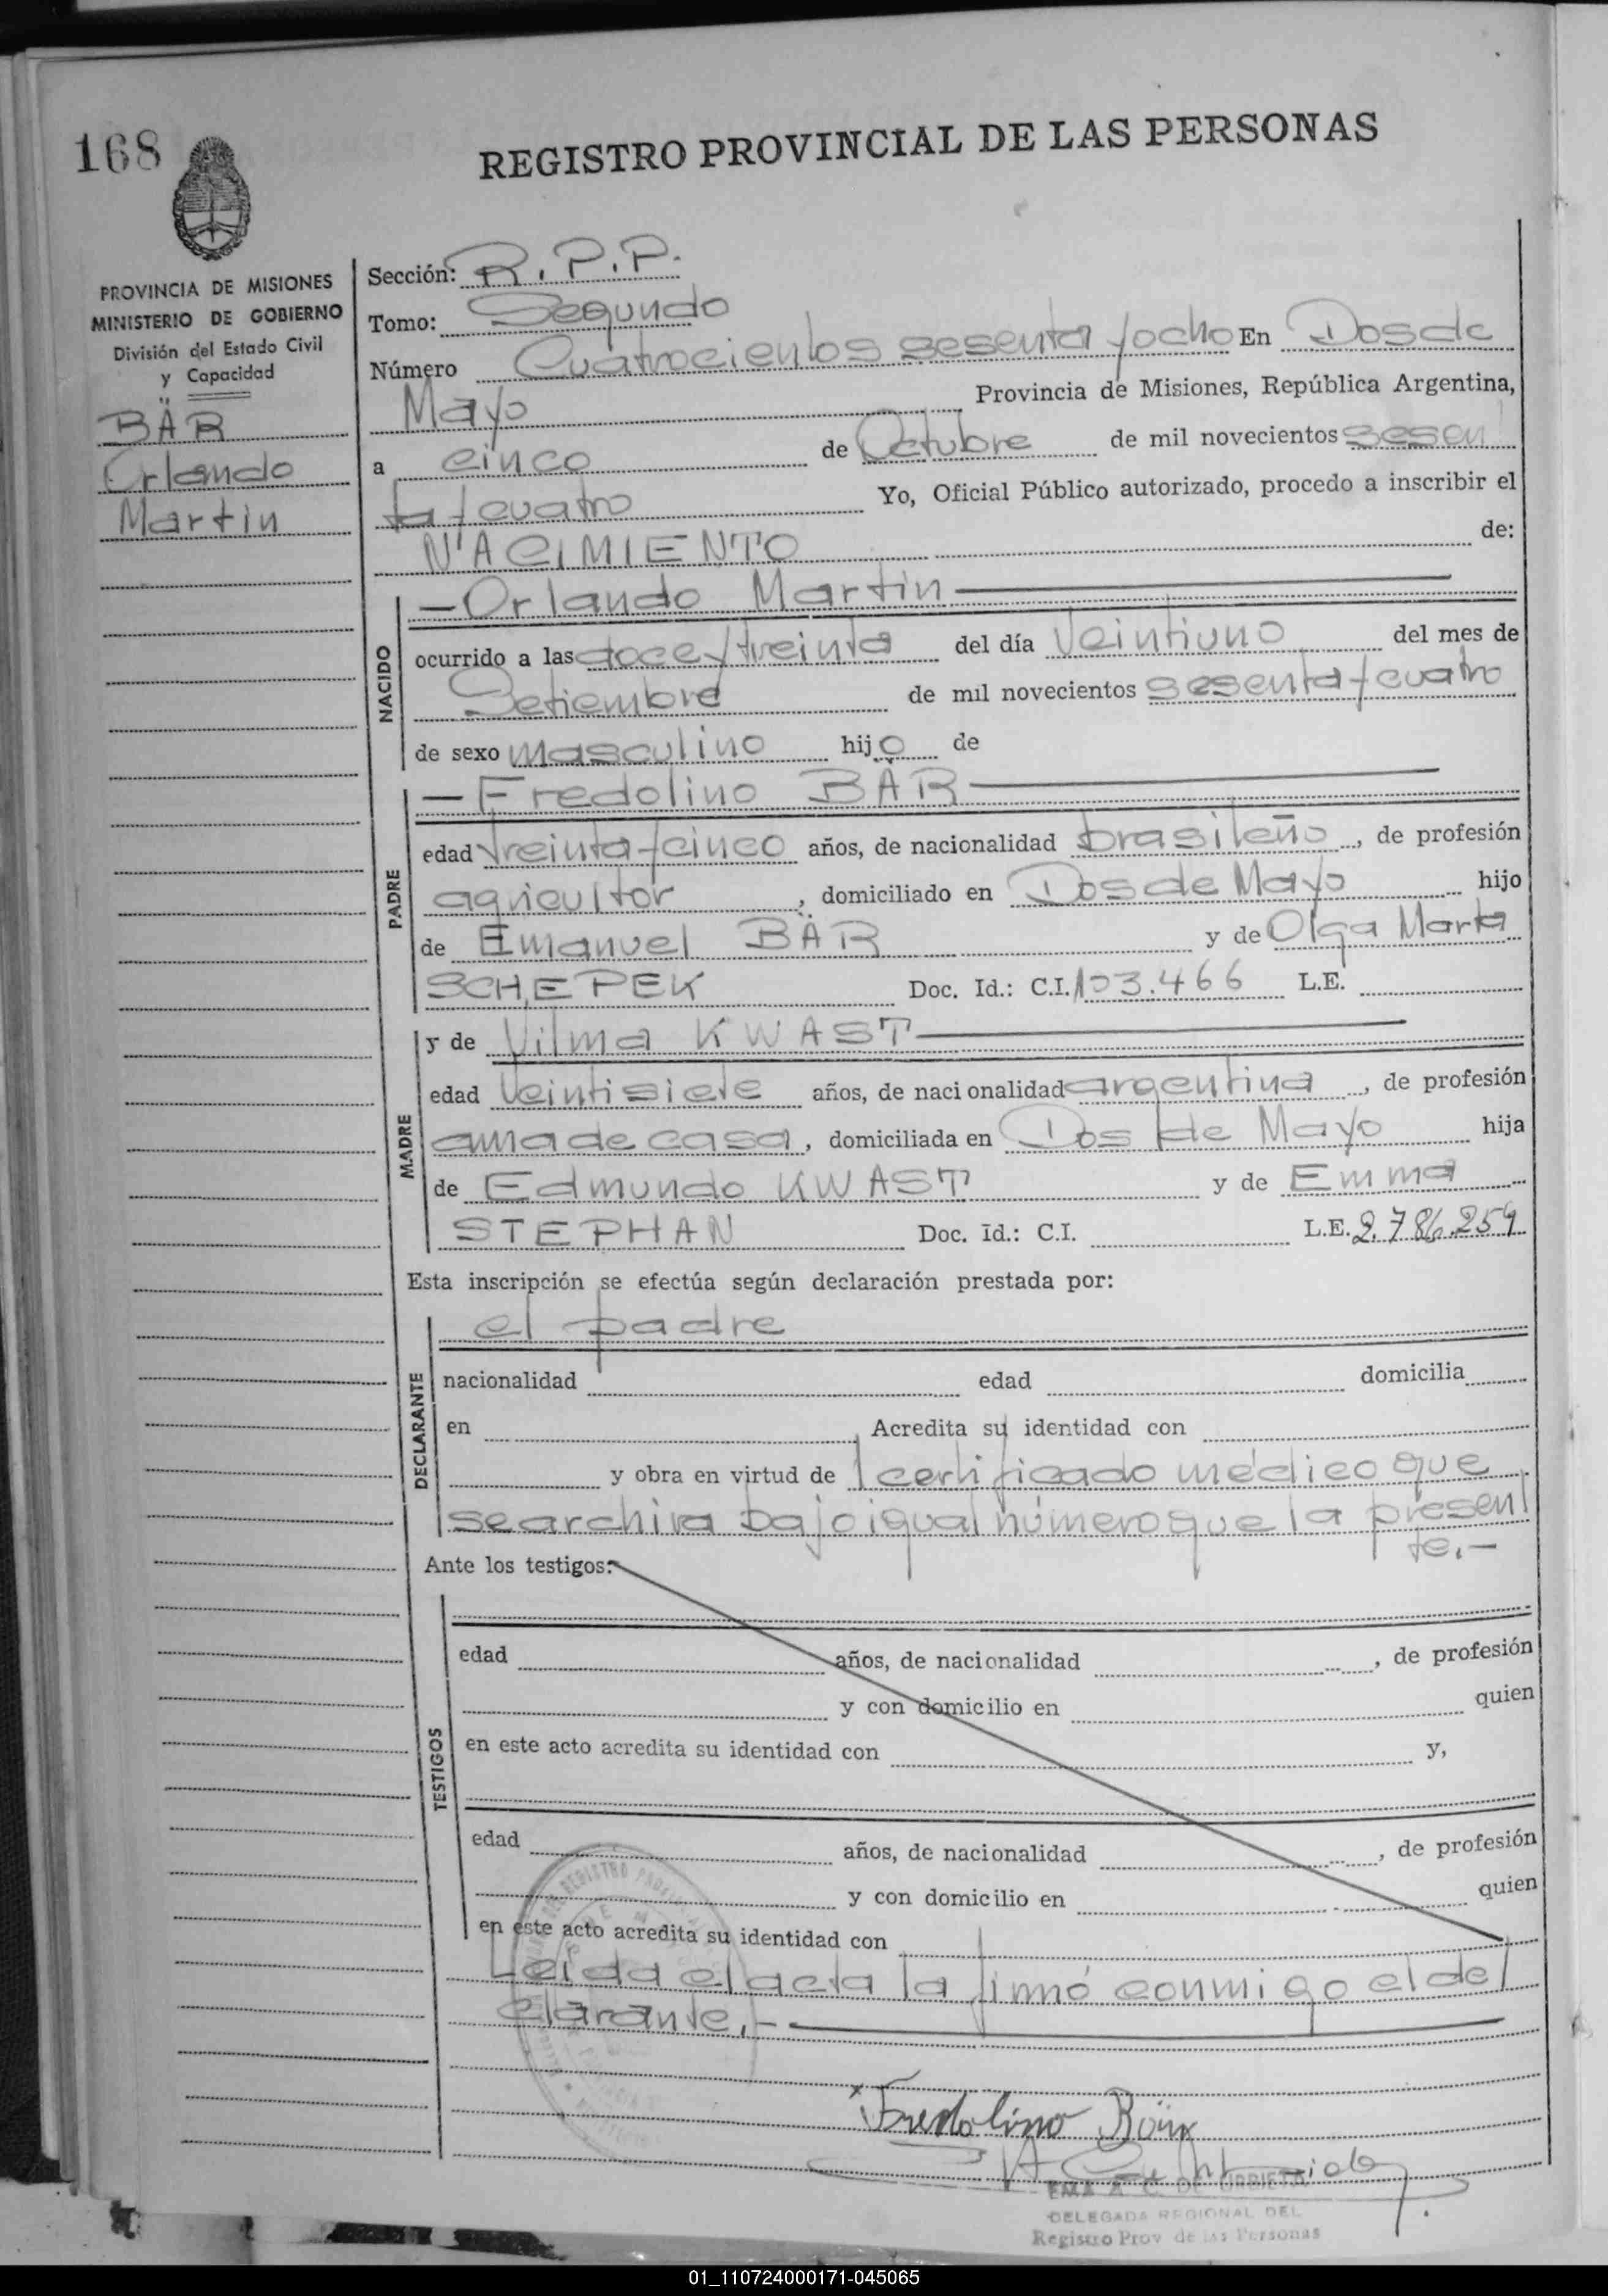 168
REGISTRO PROVINCIAL DE LAS PERSONAS
PROVINCIA DE MISIONES
MINISTERIO DE GOBIERNO
División del Estado Civil
y Capacidad
BÄR
Orlando
Martin
Sección: R. P. P.
Tomo: Segundo
Número Cuatrocientos sesenta y ocho En Dos de
Mayo Provincia de Misiones, República Argentina,
a cinco de Octubre de mil novecientos sesen
ta y cuatro Yo, Oficial Público autorizado, procedo a inscribir el
NACIMIENTO de:
NACIDO
—Orlando Martin—
ocurrido a las doce y treinta del día Veintiuno del mes de
Setiembre de mil novecientos sesenta y cuatro
de sexo masculino hijo de
PADRE
—Fredolino BÄR—
edad treinta y cinco años, de nacionalidad brasileño, de profesión
agricultor, domiciliado en Dos de Mayo hijo
de Emanuel BÄR y de Olga Marta
SCHEPEK Doc. Id.: C.I. 103.466 L.E.
MADRE
y de Vilma KWAST—
edad Veintisiete años, de nacionalidad argentina, de profesión
ama de casa, domiciliada en Dos de Mayo hija
de Edmundo KWAST y de Emma
STEPHAN Doc. Id.: C.I. L.E. 2.786.259
Esta inscripción se efectúa según declaración prestada por:
DECLARANTE
el padre
nacionalidad edad domicilia
en Acredita su identidad con
y obra en virtud de 1 certificado médico que
se archiva bajo igual número que la presen
te.-
Ante los testigos:
TESTIGOS
edad años, de nacionalidad , de profesión
y con domicilio en quien
en este acto acredita su identidad con y,
edad años, de nacionalidad , de profesión
y con domicilio en quien
en este acto acredita su identidad con
Leída el acta la firmó conmigo el de
clarante.-
Fredolino Bär
EMA A. C. DE URBIETA
DELEGADA REGIONAL DEL
Registro Prov de las Personas
01_110724000171-045065